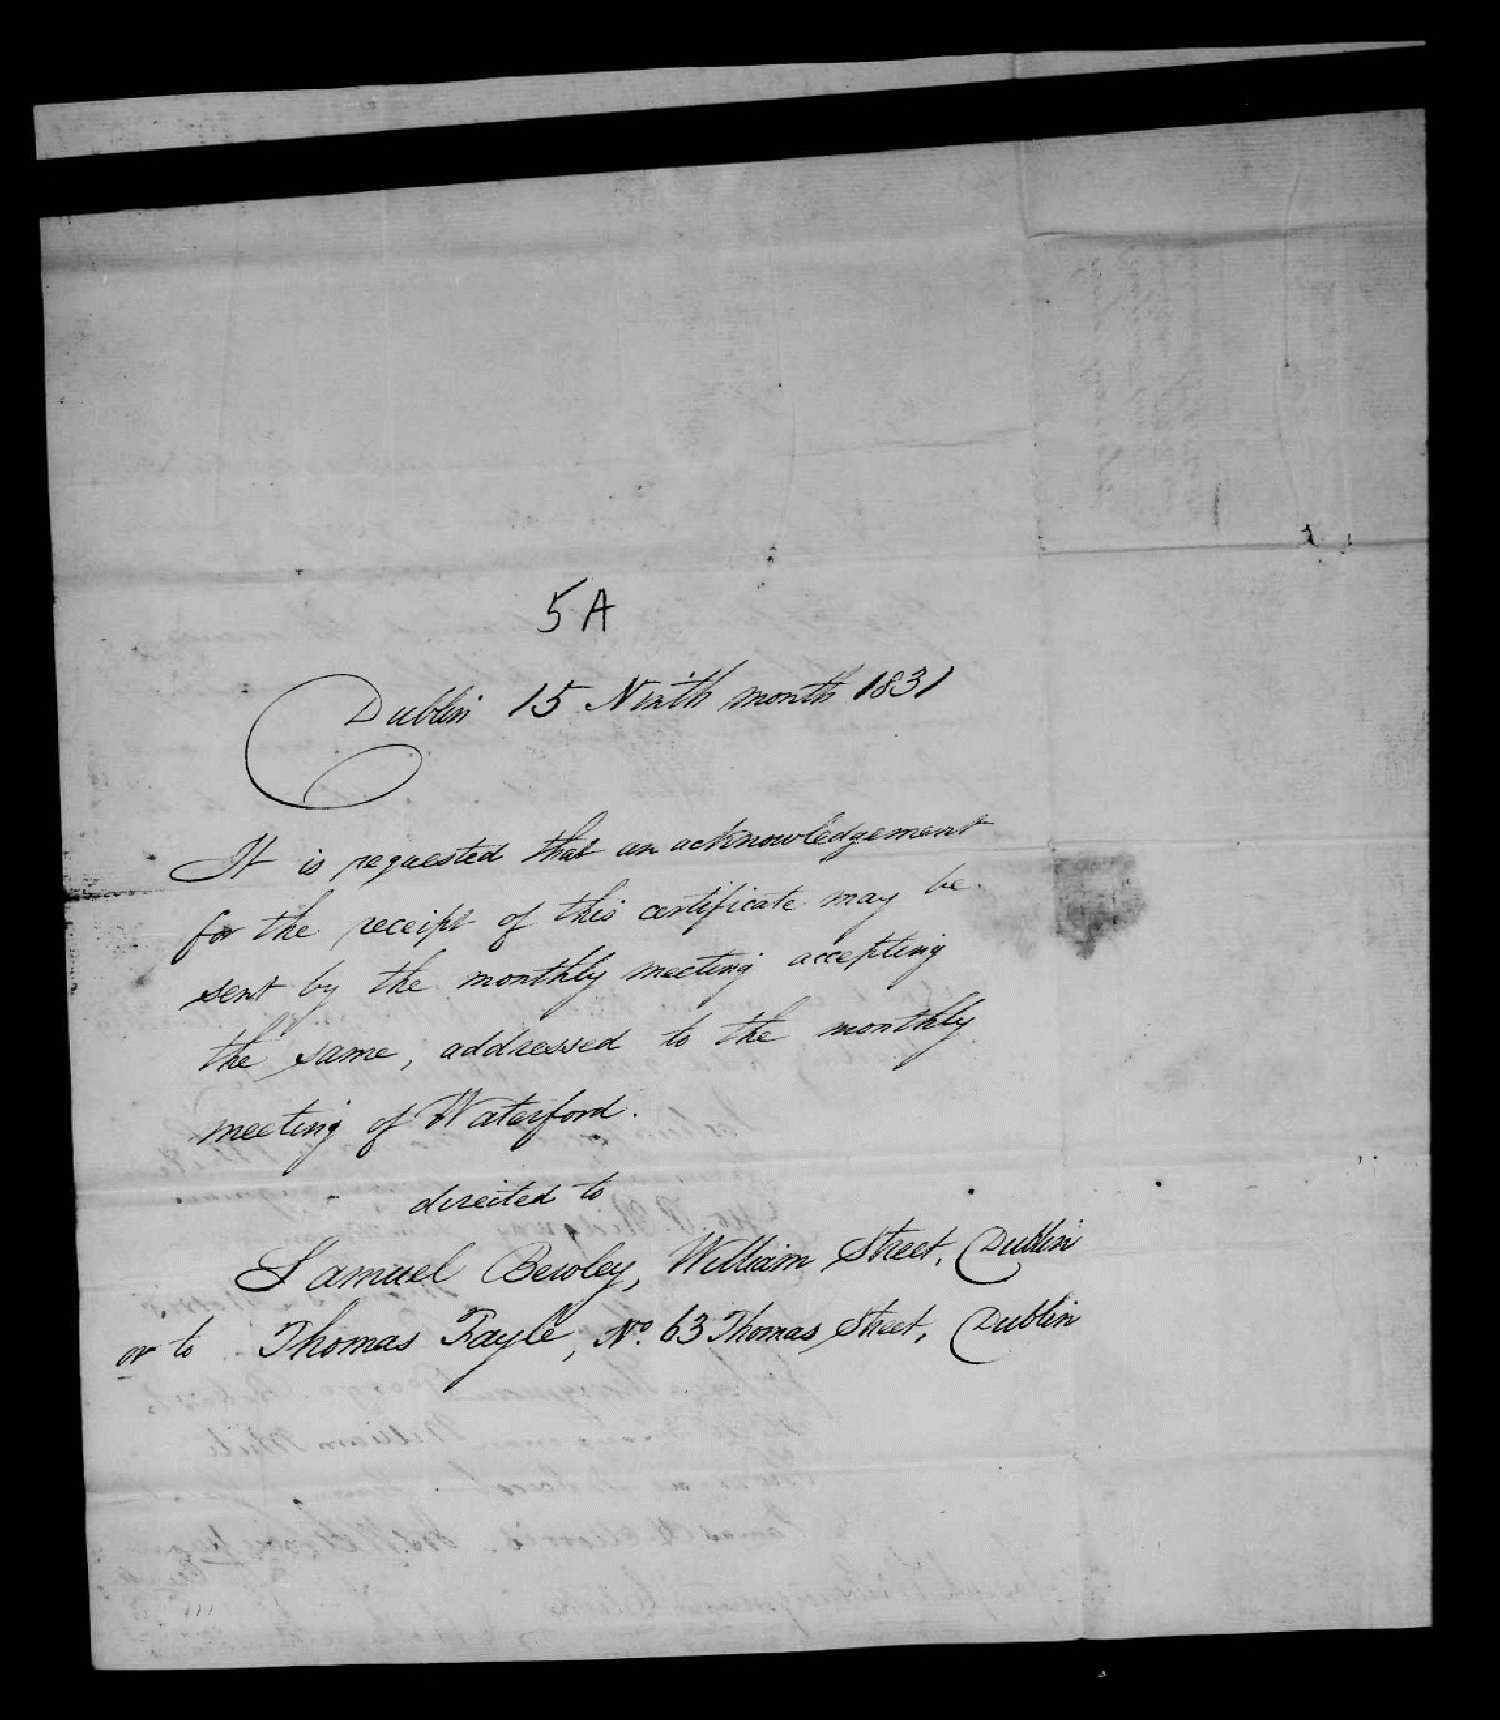 5A
Dublin 15 Ninth month 1831
It is requested that an acknowledgement
for the receipt of this certificate may be
sent by the monthly meeting accepting
the same, addressed to the monthly
meeting of Waterford.
directed to
Samuel Bewley, William Street, Dublin
or to Thomas Fayle, No. 63 Thomas Street, Dublin